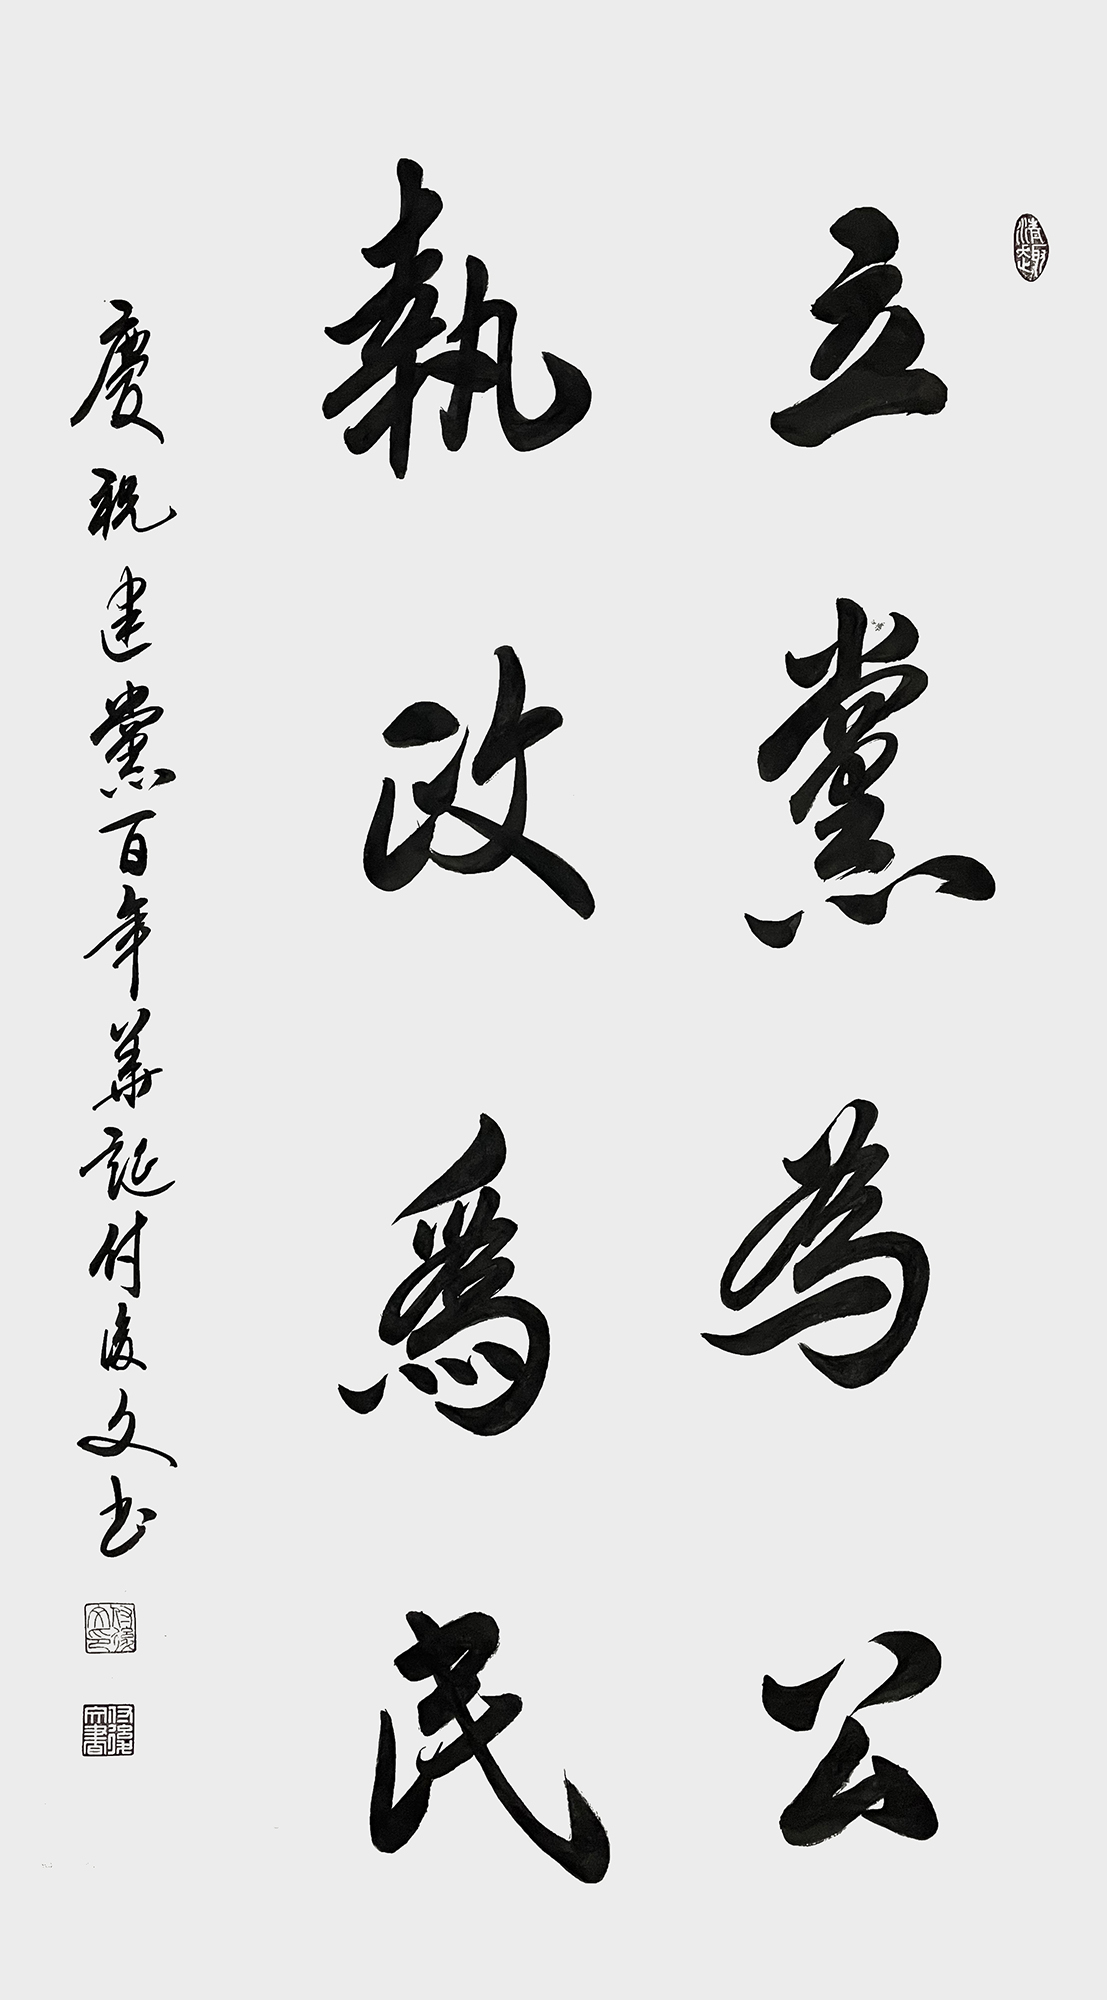 清趣
立黨為公
執政爲民
慶祝建黨百年華誕付文书